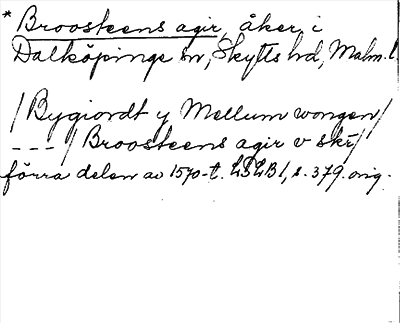 * Broosteens agir, åker i
Dalköpinge sn, Skytts hd, Malm. l.
/ Bygiordt y Mellum wongen /
--- / Broosteens agir v skr /
förra delen av 1570-t. LSLB 1, s. 379. orig.